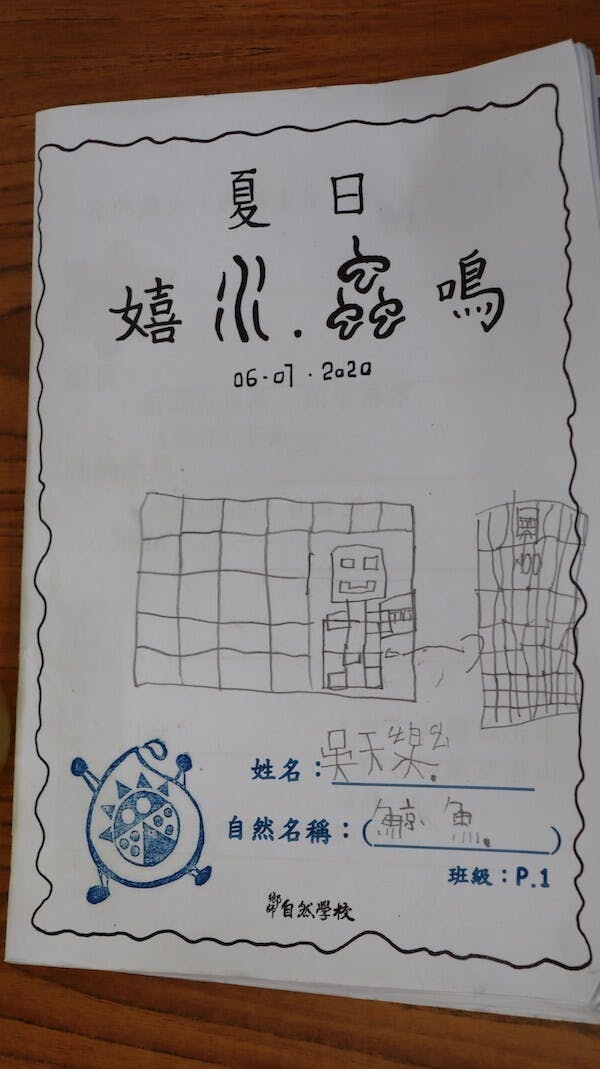 夏日
嬉水.蟲鳴
06-07.2020
姓名：吳天樂
自然名稱：（鯨魚）
班級：P.1
鄉師自然學校